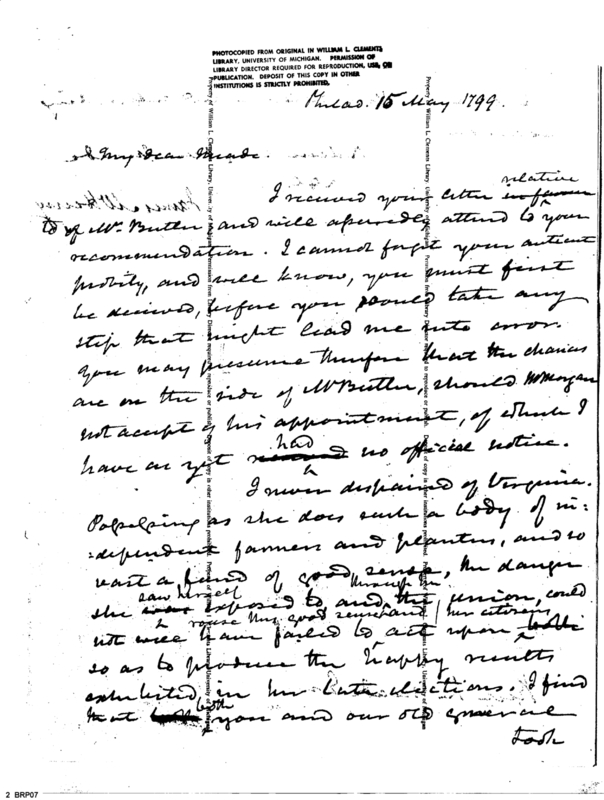 PHOTOCOPIED FROM ORIGINAL IN WILLIAM L. CLEMENTS
LIBRARY, UNIVERSITY OF MICHIGAN. PERMISSION OF
LIBRARY DIRECTOR REQUIRED FOR REPRODUCTION, USE, OR
PUBLICATION. DEPOSIT OF THIS COPY IN OTHER
INSTITUTIONS IS STRICTLY PROHIBITED.
Philad. 15 May 1799.
My dear
relative
I received your letter
to of Mr. Butler and will assuredly attend to your
recommendation. I cannot forget your antient
probity, and well know, you must first
be deceived, before you would take any
step that might lead me into error.
You may presume therefore that the chances
are on the side of Mr Butler, should Mr Morgan
not accept of his appointment, of which I
had
have as yet no official notice.
I never despaired of Virginia.
Possessing as she does such a body of in:
:dependent farmers and planters, and so
vast a fund of good sense, the danger
saw herself through her
she was exposed to and the union, could
rouse this good sense and her citizens
not well have failed to act upon
so as to produce the happy results
exhibited, in her late elections. I find
both
that you and our old general
took
2 BRP07